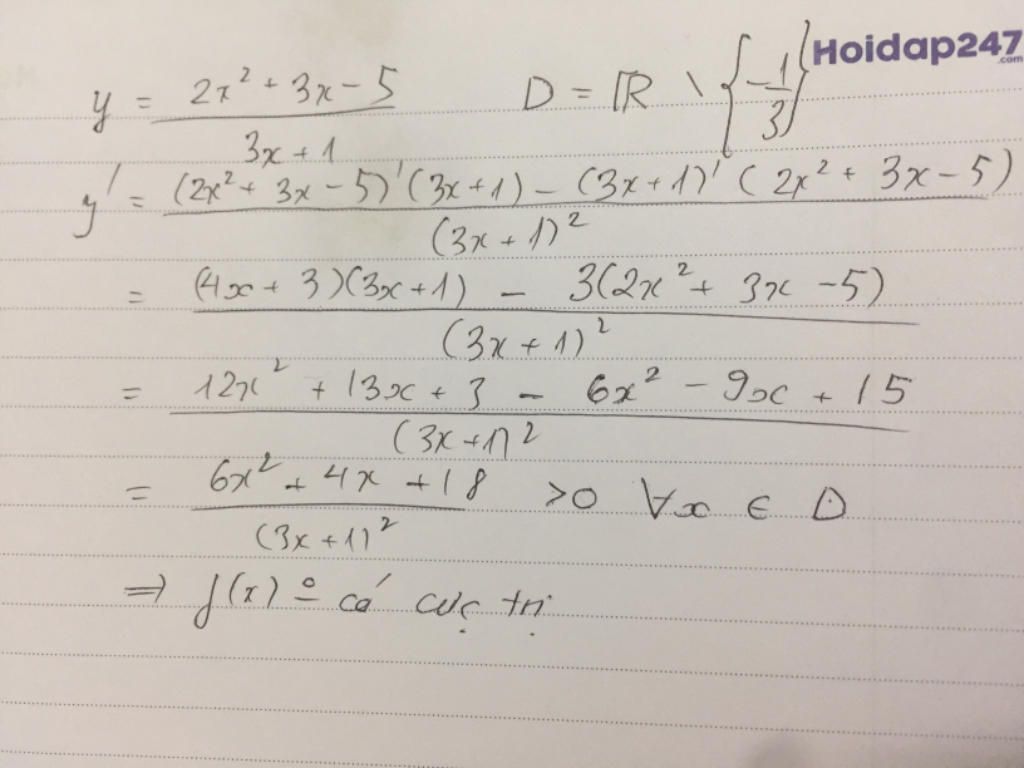 Hoidap247
.com
y = (2x² + 3x - 5)/(3x + 1) D = ℝ \ {-1/3}
y' = ((2x² + 3x - 5)'(3x + 1) - (3x + 1)'(2x² + 3x - 5))/(3x + 1)²
= ((4x + 3)(3x + 1) - 3(2x² + 3x - 5))/(3x + 1)²
= (12x² + 13x + 3 - 6x² - 9x + 15)/(3x + 1)²
= (6x² + 4x + 18)/(3x + 1)² >0 ∀x ∈ D
⇒ f(x) có cực trị